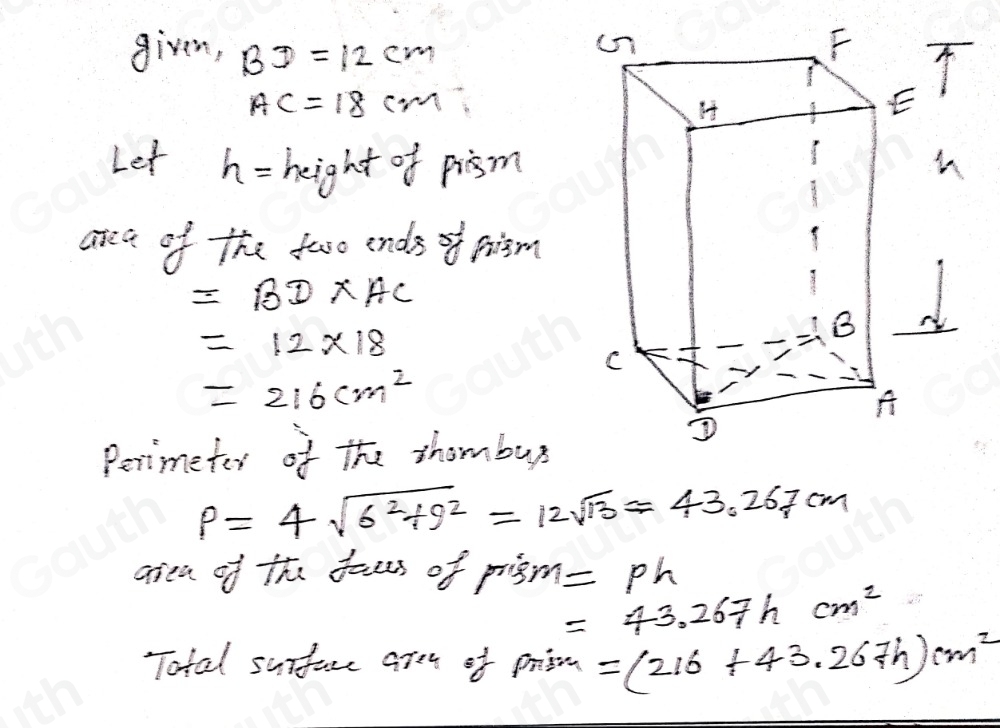 given, BD = 12 cm
AC = 18 cm
Let h = height of prism
area of the two ends of prism
= BD × AC
= 12 × 18
= 216 cm²
Perimeter of the rhombus
P = 4 √(6²+9²) = 12√13 = 43.267 cm
area of the faces of prism = ph
= 43.267 h cm²
Total surface area of prism = (216 + 43.267h) cm²
G
F
H
E
h
B
C
A
D
Gauth